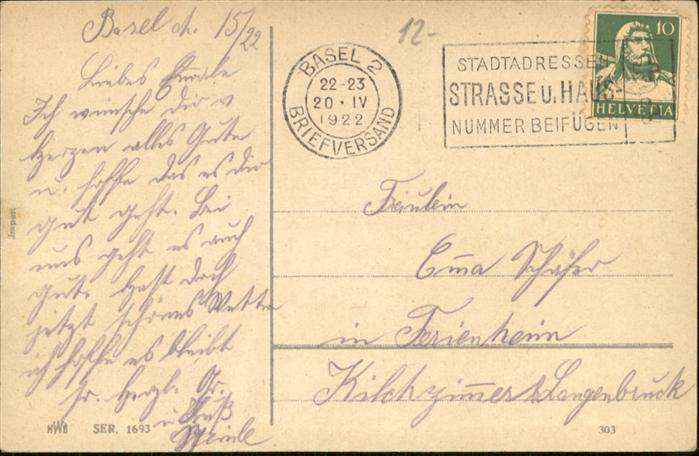 Basel d. 15/22
12-
Liebes
Ich wünsche dir v
Herzen alles Gute
u. hoffe das es dir
gut geht. Bei
uns geht es auch
gut. Hast doch
jetzt schönes Wetter
ich hoffe es bleibt
so. Herzl. Gr.
u. Kuß
BASEL 2
22-23
20·IV
1922
BRIEFVERSAND
STADTADRESSEN
STRASSE u. HAUS-
NUMMER BEIFÜGEN
10
HELVETIA
Fräulein
Emma Schäfer
in Ferienheim
Kilchzimmer Langenbruck
Import
KWB SER. 1693
303